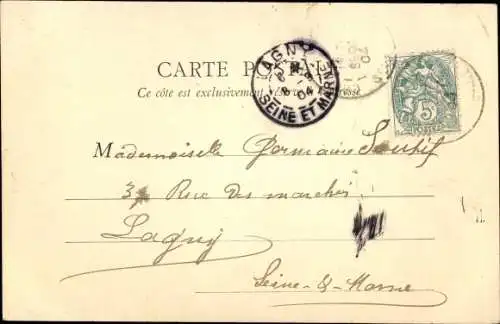 CARTE POSTALE
Ce côté est exclusivement réservé à l'adresse
LAGNY
8 04
SEINE ET MARNE
04
5
POSTES
Mademoiselle Germaine Soubif
3, Rue des marchés
Lagny
Seine-&-Marne